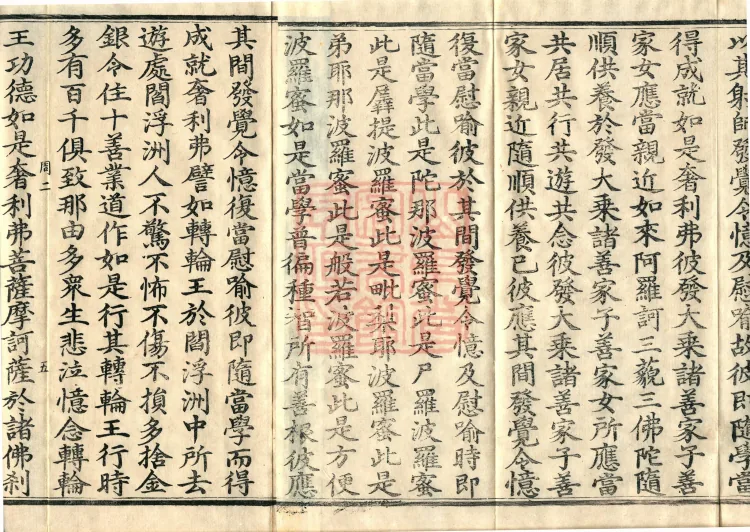 以其射師發覺令憶及慰喻故彼即隨學當
得成就如是奢利弗彼發大乘諸善家子善
家女應當親近如來阿羅訶三藐三佛陀隨
順供養於發大乘諸善家子善家女所應當
共居共行共遊共念彼發大乘諸善家子善
家女親近隨順供養已彼應其間發覺令憶
復當慰喻彼於其間發覺令憶及慰喻時即
隨當學此是陀那波羅蜜此是尸羅波羅蜜
此是羼提波羅蜜此是毗梨耶波羅蜜此是
弟耶那波羅蜜此是般若波羅蜜此是方便
波羅蜜如是當學普徧種智所有善根彼應
其間發覺令憶復當慰喻彼即隨當學而得
成就奢利弗譬如轉輪王於閻浮洲中所去
遊處閻浮洲人不驚不怖不傷不損多捨金
銀令住十善業道作如是行其轉輪王行時
周二 五
多有百千俱致那由多衆生悲泣憶念轉輪
王功德如是奢利弗菩薩摩訶薩於諸佛剎